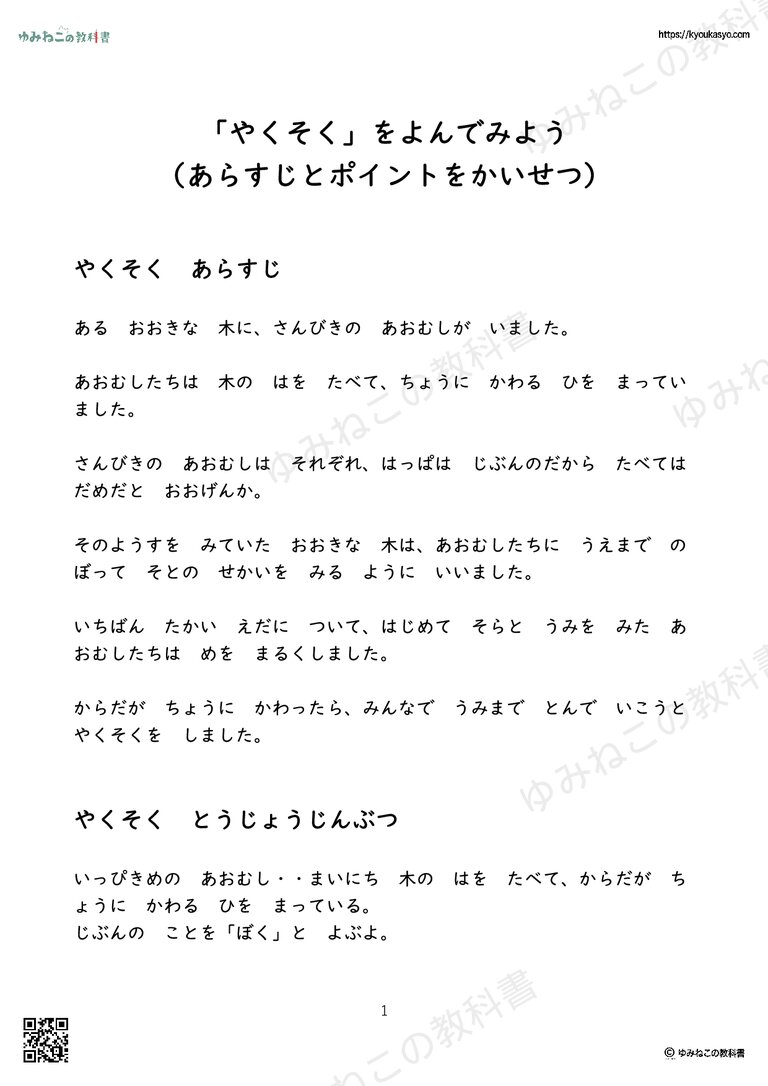 ゆみねこの教科書
https://kyoukasyo.com
「やくそく」をよんでみよう
（あらすじとポイントをかいせつ）
やくそく　あらすじ
ある　おおきな　木に、さんびきの　あおむしが　いました。
あおむしたちは　木の　はを　たべて、ちょうに　かわる　ひを　まってい
ました。
さんびきの　あおむしは　それぞれ、はっぱは　じぶんのだから　たべては
だめだと　おおげんか。
そのようすを　みていた　おおきな　木は、あおむしたちに　うえまで　の
ぼって　そとの　せかいを　みる　ように　いいました。
いちばん　たかい　えだに　ついて、はじめて　そらと　うみを　みた　あ
おむしたちは　めを　まるくしました。
からだが　ちょうに　かわったら、みんなで　うみまで　とんで　いこうと
やくそくを　しました。
やくそく　とうじょうじんぶつ
いっぴきめの　あおむし・・まいにち　木の　はを　たべて、からだが　ち
ょうに　かわる　ひを　まっている。
じぶんの　ことを「ぼく」と　よぶよ。
1
© ゆみねこの教科書
ゆみねこの教科書
ゆみねこの教科書
ゆみね
ゆみねこの教科書
ねこの教科書